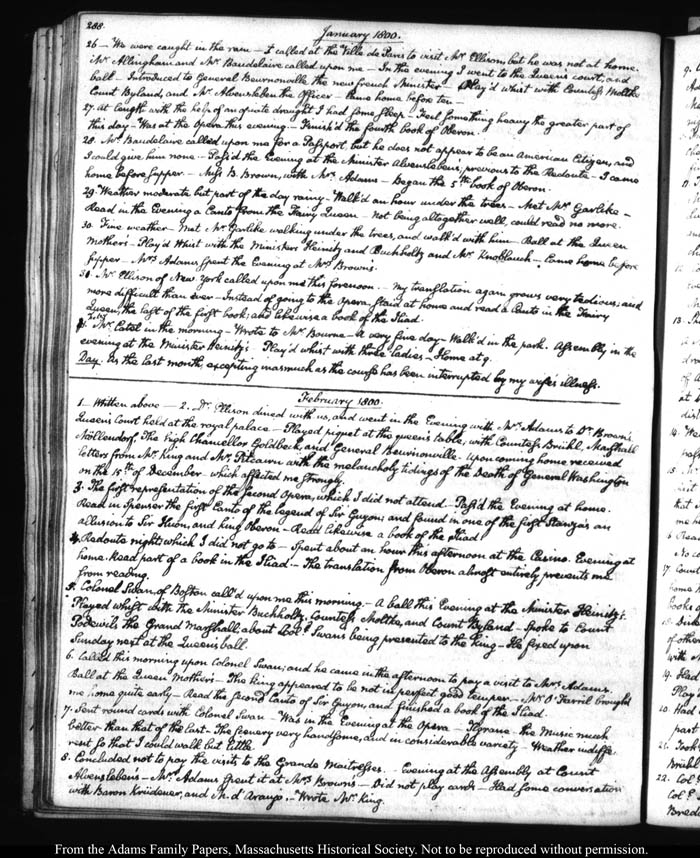 288.
January 1800.
26 – We were caught in the rain – I called at the Ville de Paris to visit Mr. Ellison but he was not at home.
Mr. Allingham and Mr. Baudelaire called upon me – In the evening I went to the Queen's court, and
ball – Introduced to General Beurnonville the new french Minister – Play'd whist with Countess Moltke
Count Byland, and Mr. Alvensleben the Officer – Came home before ten –
27. At length with the help of an opiate draught I had some sleep – Feel something heavy the greater part of
this day – Was at the Opera this evening – Finish'd the fourth book of Oberon.
28. Mr. Baudelaire called upon me for a Passport, but he does not appear to be an American Citizen, and
I could give him none – Pass'd the Evening at the Minister Alvensleben's, previous to the Redoute – I came
home before supper – Miss B. Brown, with Mrs. Adams – Began the 5th. book of Oberon.
29. Weather moderate but part of the day rainy – Walk'd an hour under the trees – Met Mr. Garlike –
Read in the Evening a Canto from the Fairy Queen – Not being altogether well, could read no more.
30. Fine weather – Met Mr. Garlike walking under the trees, and walk'd with him – Ball at the Queen
Mother's – Play'd Whist with the Ministers Heinitz and Buchholtz and Mr. Knoblauch – Came home before
supper – Mrs. Adams spent the Evening at Mrs. Brown's.
31. Mr. Ellison of New York called upon me this forenoon. – My translation again grows very tedious, and
more difficult than ever – Instead of going to the Opera, staid at home and read a Canto in the Fairy
Queen, the last of the first book; and likewise a book of the Iliad.
Mr. Catel in the morning – Wrote to Mr. Bourne – A very fine day – Walk'd in the park. Assembly in the
evening at the Minister Heinitz's – Play'd whist with three ladies – Home at 9.
Day. As the last month, excepting inasmuch as the course has been interrupted by my wife's illness.
February 1800.
1 – Written above – 2. Dr. Ellison dined with us, and went in the Evening with Mrs. Adams to Dr. Brown's
Queen's Court held at the royal palace – Played piquet at the queen's table, with Countess Brühl, Marshall
Möllendorf, The High Chancellor Goldbeck, and General Beurnonville. Upon coming home received
letters from Mr. King and Mr. Pitcairn with the melancholy tidings of the Death of General Washington
on the 15th. of December – which affected me strongly.
3. The first representation of the second Opera, which I did not attend – Pass'd the Evening at home.
Read in Spenser the first Canto of the legend of Sir Guyon; and found in one of the first Stanzas an
allusion to Sir Huon, and king Oberon – Read likewise a book of the Iliad
4. Redoute night; which I did not go to – Spent about an hour this afternoon at the Casino. Evening at
home. Read part of a book in the Iliad – The translation from Oberon almost entirely prevents me
from reading.
5. Colonel Swan, of Boston call'd upon me this morning. – A ball this Evening at the Minister Heinitz's.
Played whist with the Minister Buchholtz, Countess Moltke, and Count Byland – Spoke to Count
Podewils the Grand Marshall, about Colo. Swan's being presented to the King – He fixed upon
Sunday next at the Queen's ball.
6. Called this morning upon Colonel Swan; and he came in the afternoon to pay a visit to Mrs. Adams.
Ball at the Queen Mother's – The king appeared to be not in perfect good temper – Mr. O'Farril brought
me home quite early – Read the second Canto of Sir Guyon, and finished a book of the Iliad.
7. Sent round cards with Colonel Swan – Was in the Evening at the Opera – Tigrane – the Music much
better than that of the last – The scenery very handsome, and in considerable variety – Weather indiffe-
rent so that I could walk but little.
8. Concluded not to pay the visits to the Grande Maitresses. – Evening at the Assembly at Count
Alvensleben's – Mrs. Adams spent it at Mrs. Brown's – Did not play cards – Had some conversation
with Baron Krüdener, and M. d'Araujo. – Wrote Mr. King.
From the Adams Family Papers, Massachusetts Historical Society. Not to be reproduced without permission.